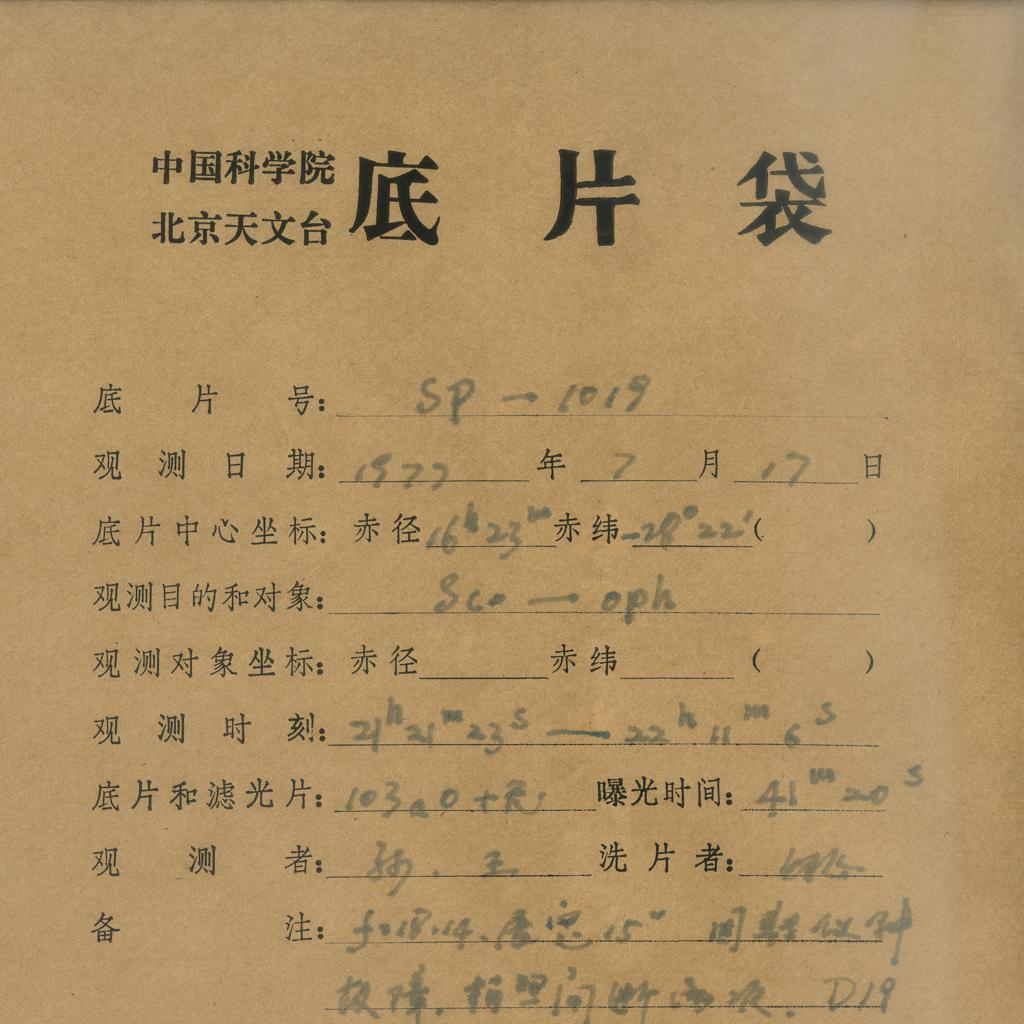 中国科学院
北京天文台
底片袋
底片号: SP → 1019
观测日期: 1977 年 7 月 17 日
底片中心坐标: 赤径 16h23m 赤纬 -28°22' ( )
观测目的和对象: Sco — oph
观测对象坐标: 赤径 赤纬 ( )
观测时刻: 21h21m23s — 22h11m6s
底片和滤光片: 103aO+ 曝光时间: 41m20s
观测者: 孙、王 洗片者:
备注: f=18.14. 15° 周转仪钟
故障, 拍照间断两次. D19